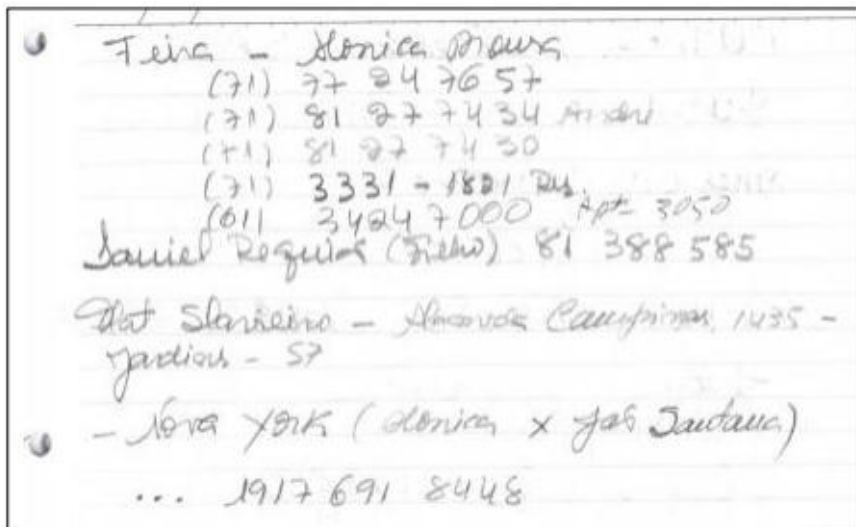 Feira - Monica Moura
(71) 77 24 7657
(71) 81 27 7434 André
(71) 81 27 7430
(71) 3331 - 1821 Res.
(61) 3424 7000 Apt- 3050
Daniel Requião (Filho) 81 388 585
Flat - Alameda Campinas, 1435 -
Jardins - SP
- Nova York (Monica x João Santana)
... 1917 691 8448